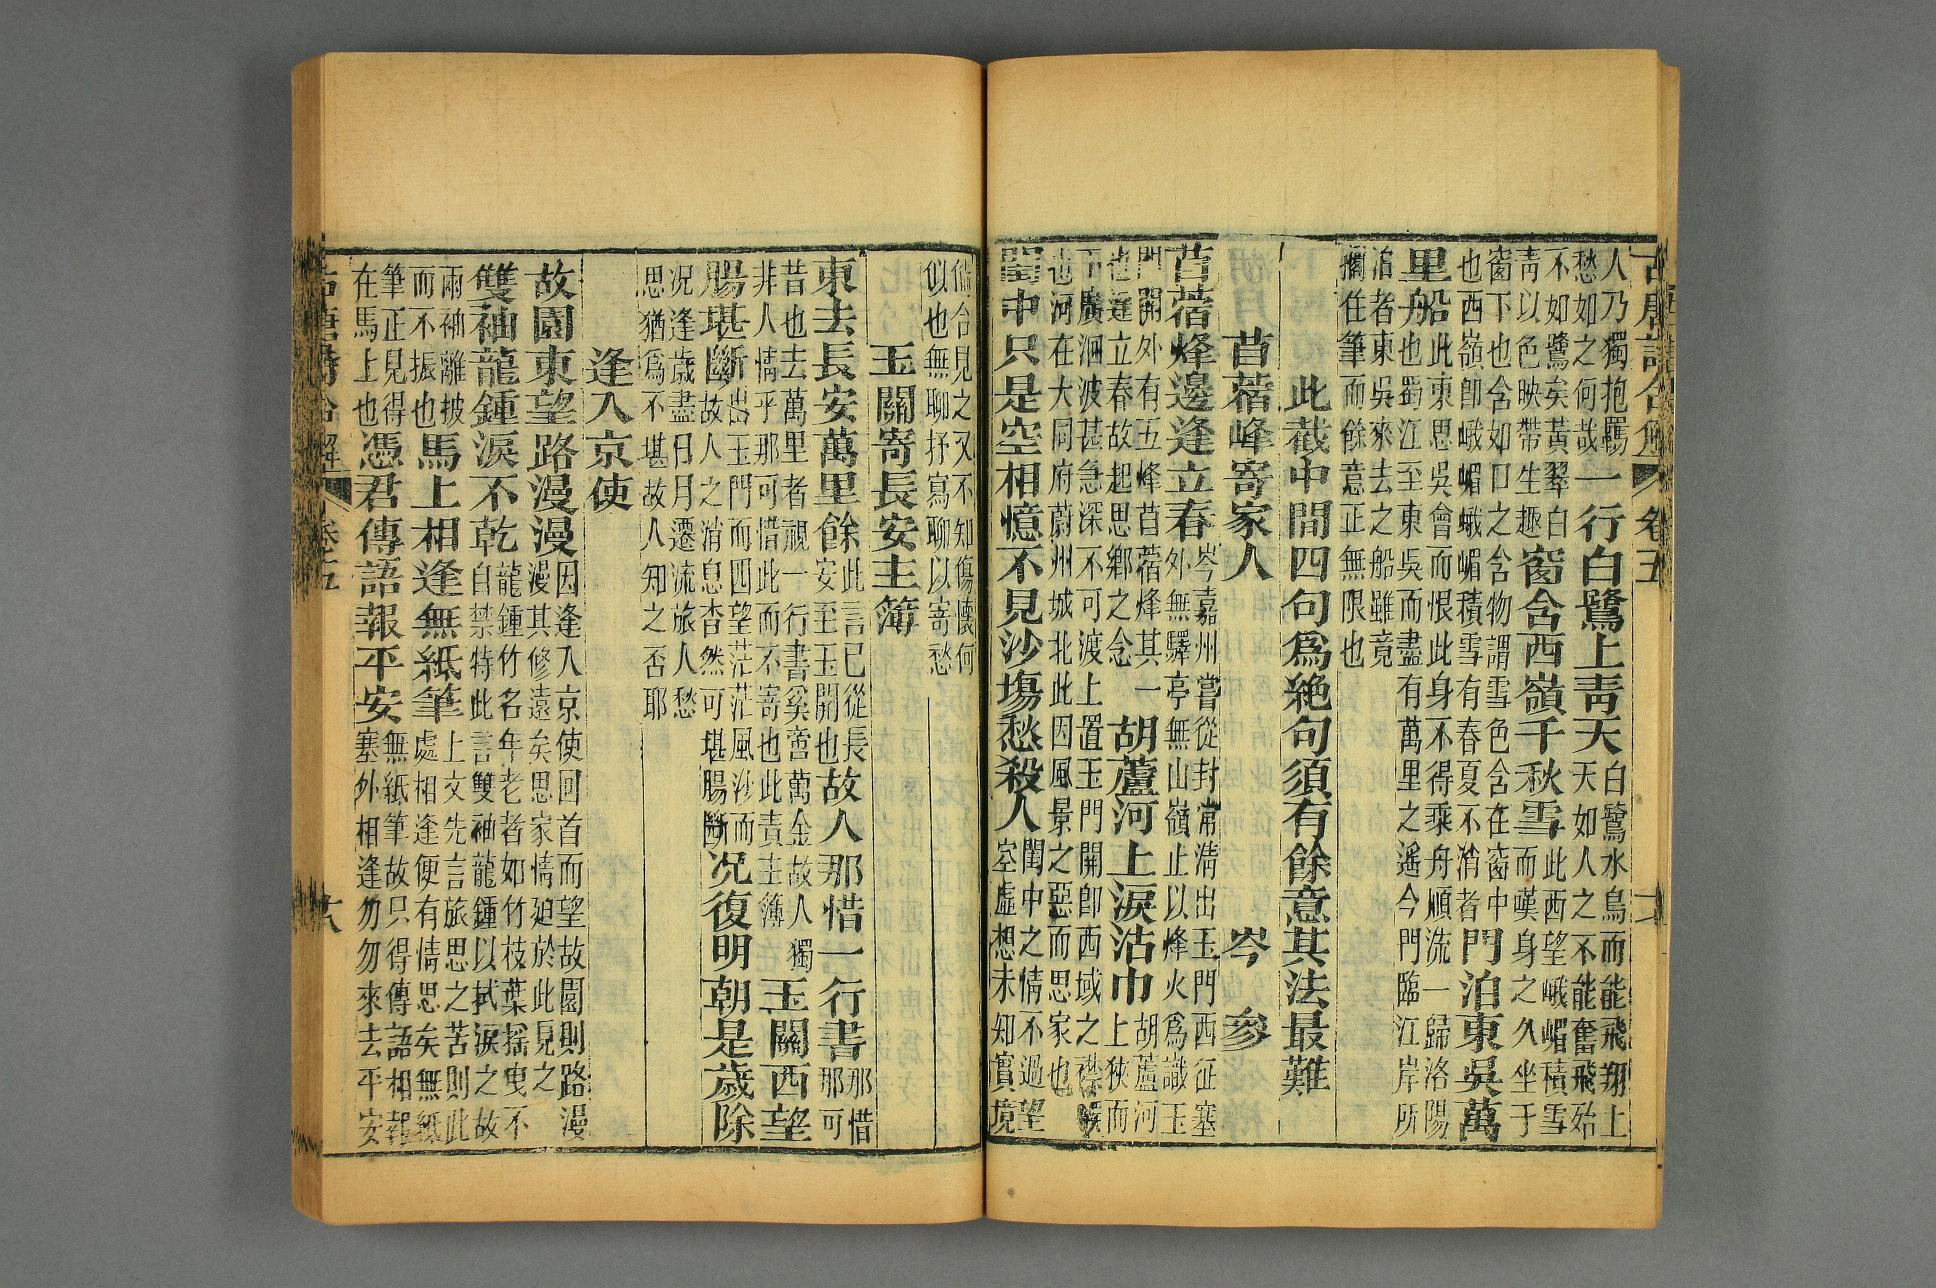 古唐詩合解 卷五
人乃獨抱羈愁如之何哉一行白鷺上青天白鷺水鳥而能飛翔上天如人之不能奮飛殆
不如鷺矣黃翠白青以色映帶生趣窗含西嶺千秋雪此西望峨嵋積雪而嘆身之久坐于
窗下也含如口之含物謂雪色含在窗中也西嶺卽峨嵋峨嵋積雪有春夏不消者門泊東吳萬
里船此東思吳會而恨此身不得乘舟順流一歸洛陽也蜀江至東吳而盡有萬里之遙今門臨江岸所
泊者東吳來去之船雖竟擱住筆而餘意正無限也
此截中間四句爲絶句須有餘意其法最難
苜蓿峰寄家人 岑 參
苜蓿烽邊逢立春岑嘉州嘗從封常清出玉門西征塞外無驛亭無山嶺止以烽火爲識玉
門開外有五烽苜蓿烽其一也逢立春故起思鄉之念胡蘆河上淚沾巾胡蘆河上狹而
下廣洄波甚急深不可渡上置玉門開卽西域之襟喉也河在大同府蔚州城北此因風景之惡而思家也
閨中只是空相憶不見沙塲愁殺人閨中之情不過望空虛想未知實境
倘合見之又不知傷懷何似也無聊抒寫聊以寄愁
玉關寄長安主簿
東去長安萬里餘此言已從長安至玉開也故人那惜一行書那惜那可
昔也去萬里者覩一行書奚啻萬金故人獨非人情乎那可惜此而不寄也此責主簿玉關西望
腸堪斷出玉門而四望茫茫風沙而故人之消息杳然可堪腸斷况復明朝是歲除
况逢歲盡日月遷流旅人愁思猶爲不堪故人知之否耶
逢入京使
故園東望路漫漫因逢入京使回首而望故園則路漫漫其修遠矣思家情廹於此見之
雙袖龍鍾淚不乾龍鍾竹名年老者如竹枝葉搖曳不自禁特此言雙袖龍鍾以拭淚之故
兩袖離披而不振也馬上相逢無紙筆上文先言旅思之苦則此處相逢便有情思矣無紙
筆正見得在馬上也憑君傳語報平安無紙筆故只得傳語相報塞外相逢勿勿來去平安
古唐詩合解 卷五